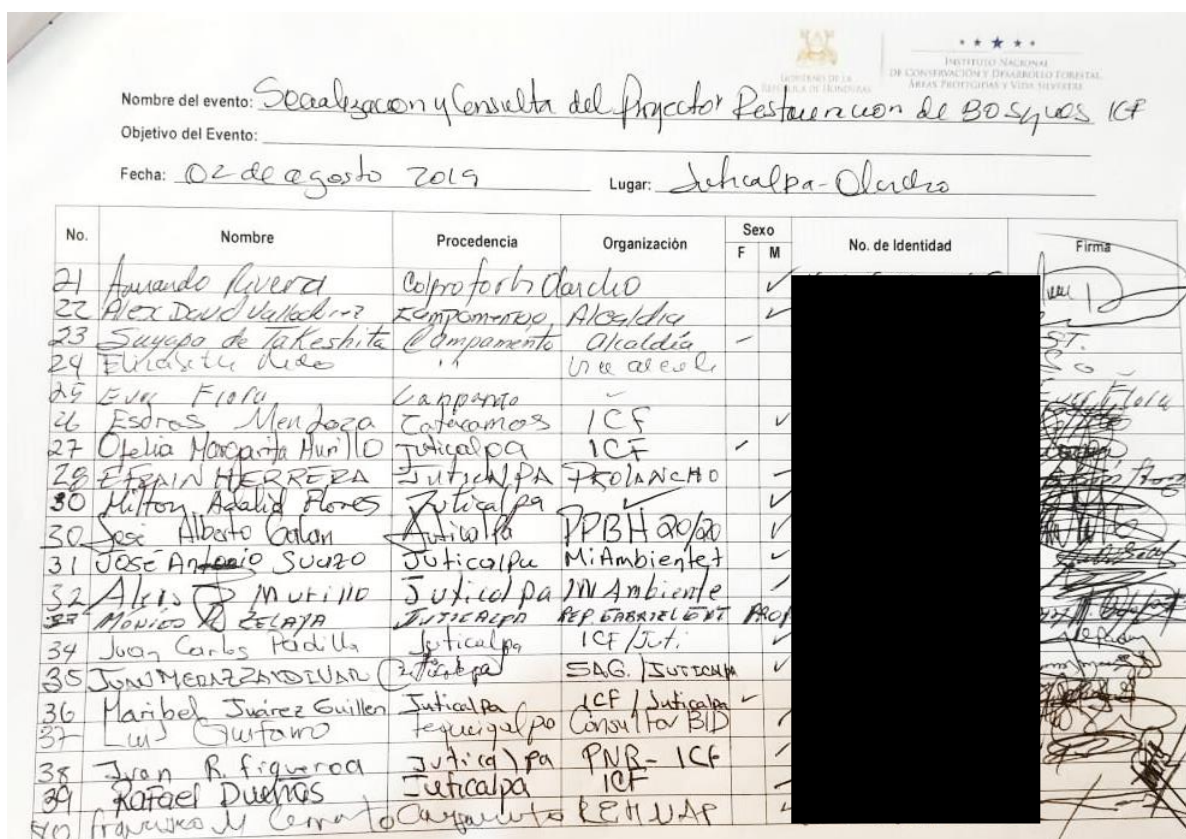 GOBIERNO DE LA REPÚBLICA DE HONDURAS
★ ★ ★ ★ ★
INSTITUTO NACIONAL
DE CONSERVACIÓN Y DESARROLLO FORESTAL,
ÁREAS PROTEGIDAS Y VIDA SILVESTRE
Nombre del evento: Socializacion y Consulta del Proyecto Restauracion de BOSques ICF
Objetivo del Evento:
Fecha: 02 de agosto 2019 Lugar: Juticalpa-Olancho
No. Nombre Procedencia Organización Sexo F M No. de Identidad Firma
21 Armando Rivera Colproforh Olancho ✓
22 Alex David Valladarez Campamento Alcaldia ✓
23 Suyapa de Takeshita Campamento alcaldía - S.T.
24 Elizabeth " Vice alcalde
25 Flora
26 Esdras Mendoza Catacamas ICF ✓
27 Ofelia Margarita Murillo Juticalpa ICF ✓
28 EFRAIN HERRERA JUTICALPA PROLANCHO
30 Milton Adalid Flores Juticalpa ✓ ✓
30 José Alberto Galan Juticalpa PPBH 20/20 ✓
31 JOSÉ Antonio SUAZO Juticalpa MiAmbiente+ ✓
32 Murillo Juticalpa Mi Ambiente
33 ZELAYA JUTICALPA REP. GABRIEL
34 Juan Carlos Padilla Juticalpa ICF/Juti. ✓
35 JUAN MEDAZZALDIVAR Juticalpa SAG. /JUTICALPA ✓
36 Maribel Juárez Guillen Juticalpa ICF / Juticalpa ✓
37 Luis Gustavo Tegucigalpa Consultor BID
38 Juan R. figueroa Juticalpa PNR- ICF
39 Rafael Dueñas Juticalpa ICF
40 Francisco M Cerrato Campamento REHNAP